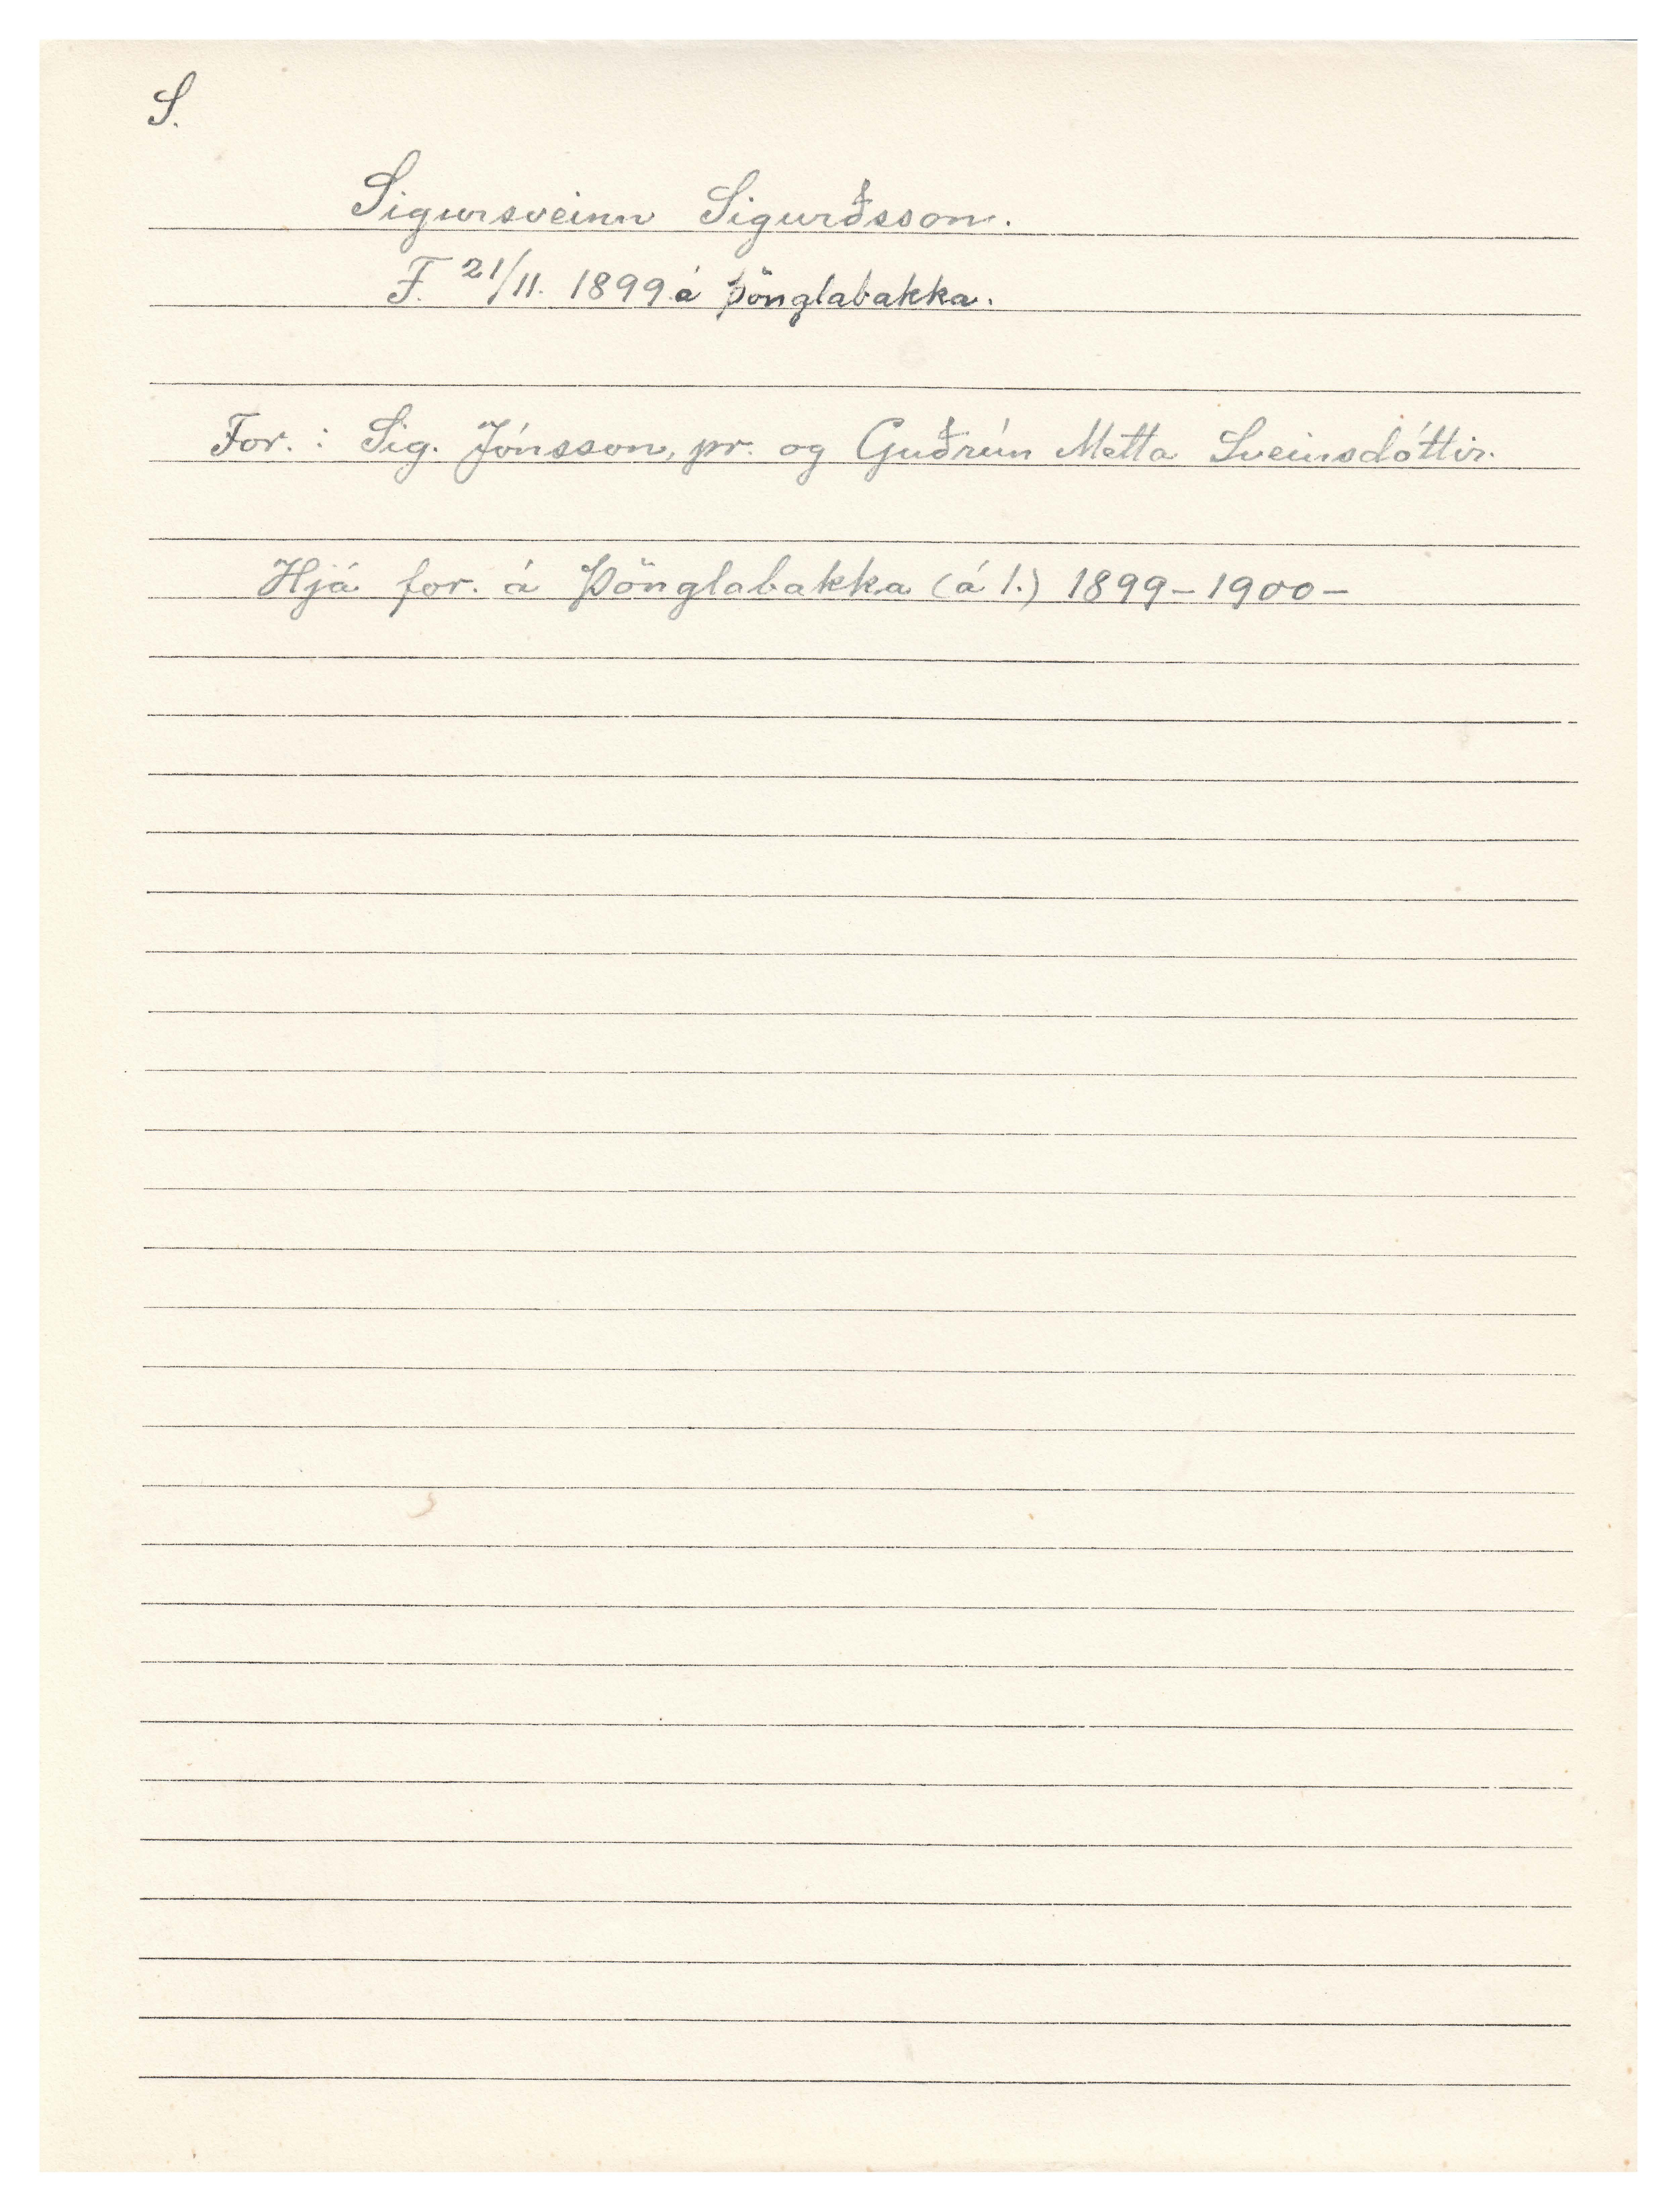 S.
Sigursveinn Sigurðsson.
F. 21/11. 1899 á Þönglabakka.
For. : Sig. Jónsson, pr. og Guðrún Metta Sveinsdóttir.
Hjá for. á Þönglabakka (á 1.) 1899-1900-